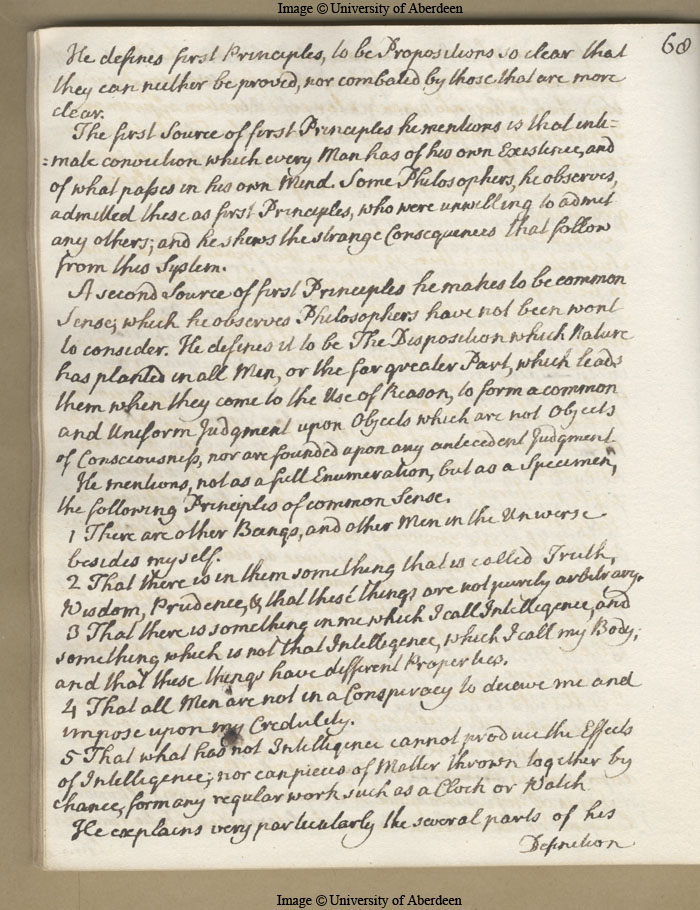 Image © University of Aberdeen
68
He defines first Principles, to be Propositions so clear that
they can neither be proved, nor combated by those that are more
clear.
The first Source of first Principles he mentions is that inti=
=mate conviction which every Man has of his own Existence, and
of what passes in his own Mind. Some Philosophers, he observes,
admitted these as first Principles, who were unwilling to admit
any others; and he shews the strange Consequences that follow
from this System.
A second Source of first Principles he makes to be common
Sense; which he observes Philosophers have not been wont
to consider. He defines it to be The Disposition which Nature
has planted in all Men, or the far greater Part, which leads
them when they come to the Use of Reason, to form a common
and Uniform Judgment upon Objects which are not Objects
of Consciousness, nor are founded upon any antecedent Judgment.
He mentions, not as a full Enumeration, but as a Specimen,
the following Principles of common Sense.
1 There are other Beings, and other Men in the Universe
besides my self.
2 That there is in them something that is called Truth,
Wisdom, Prudence, & that these things are not purely arbitrary.
3 That there is something in me which I call Intelligence, and
something which is not that Intelligence, which I call my Body;
and that these things have different Properties.
4 That all Men are not in a Conspiracy to deceive me and
impose upon my Credulity.
5 That what has not Intelligence cannot produce the Effects
of Intelligence; nor can pieces of Matter thrown together by
chance, form any regular work such as a Clock or Watch
He explains very particularly the several parts of his
Definition
Image © University of Aberdeen